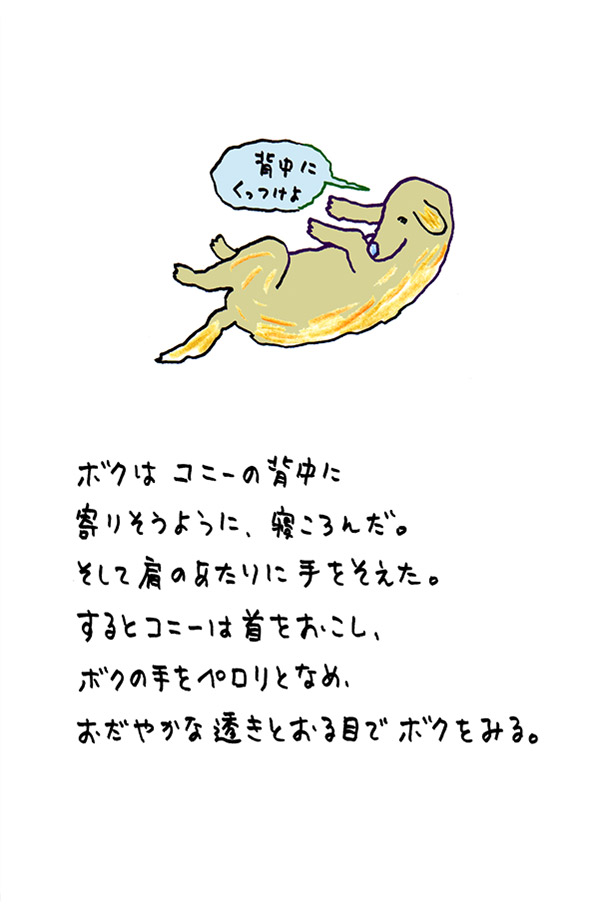 背中に
くっつけよ
ボクは コニーの背中に
寄りそうように、寝ころんだ。
そして肩のあたりに手をそえた。
するとコニーは首をおこし、
ボクの手をペロリとなめ、
おだやかな透きとおる目で ボクをみる。